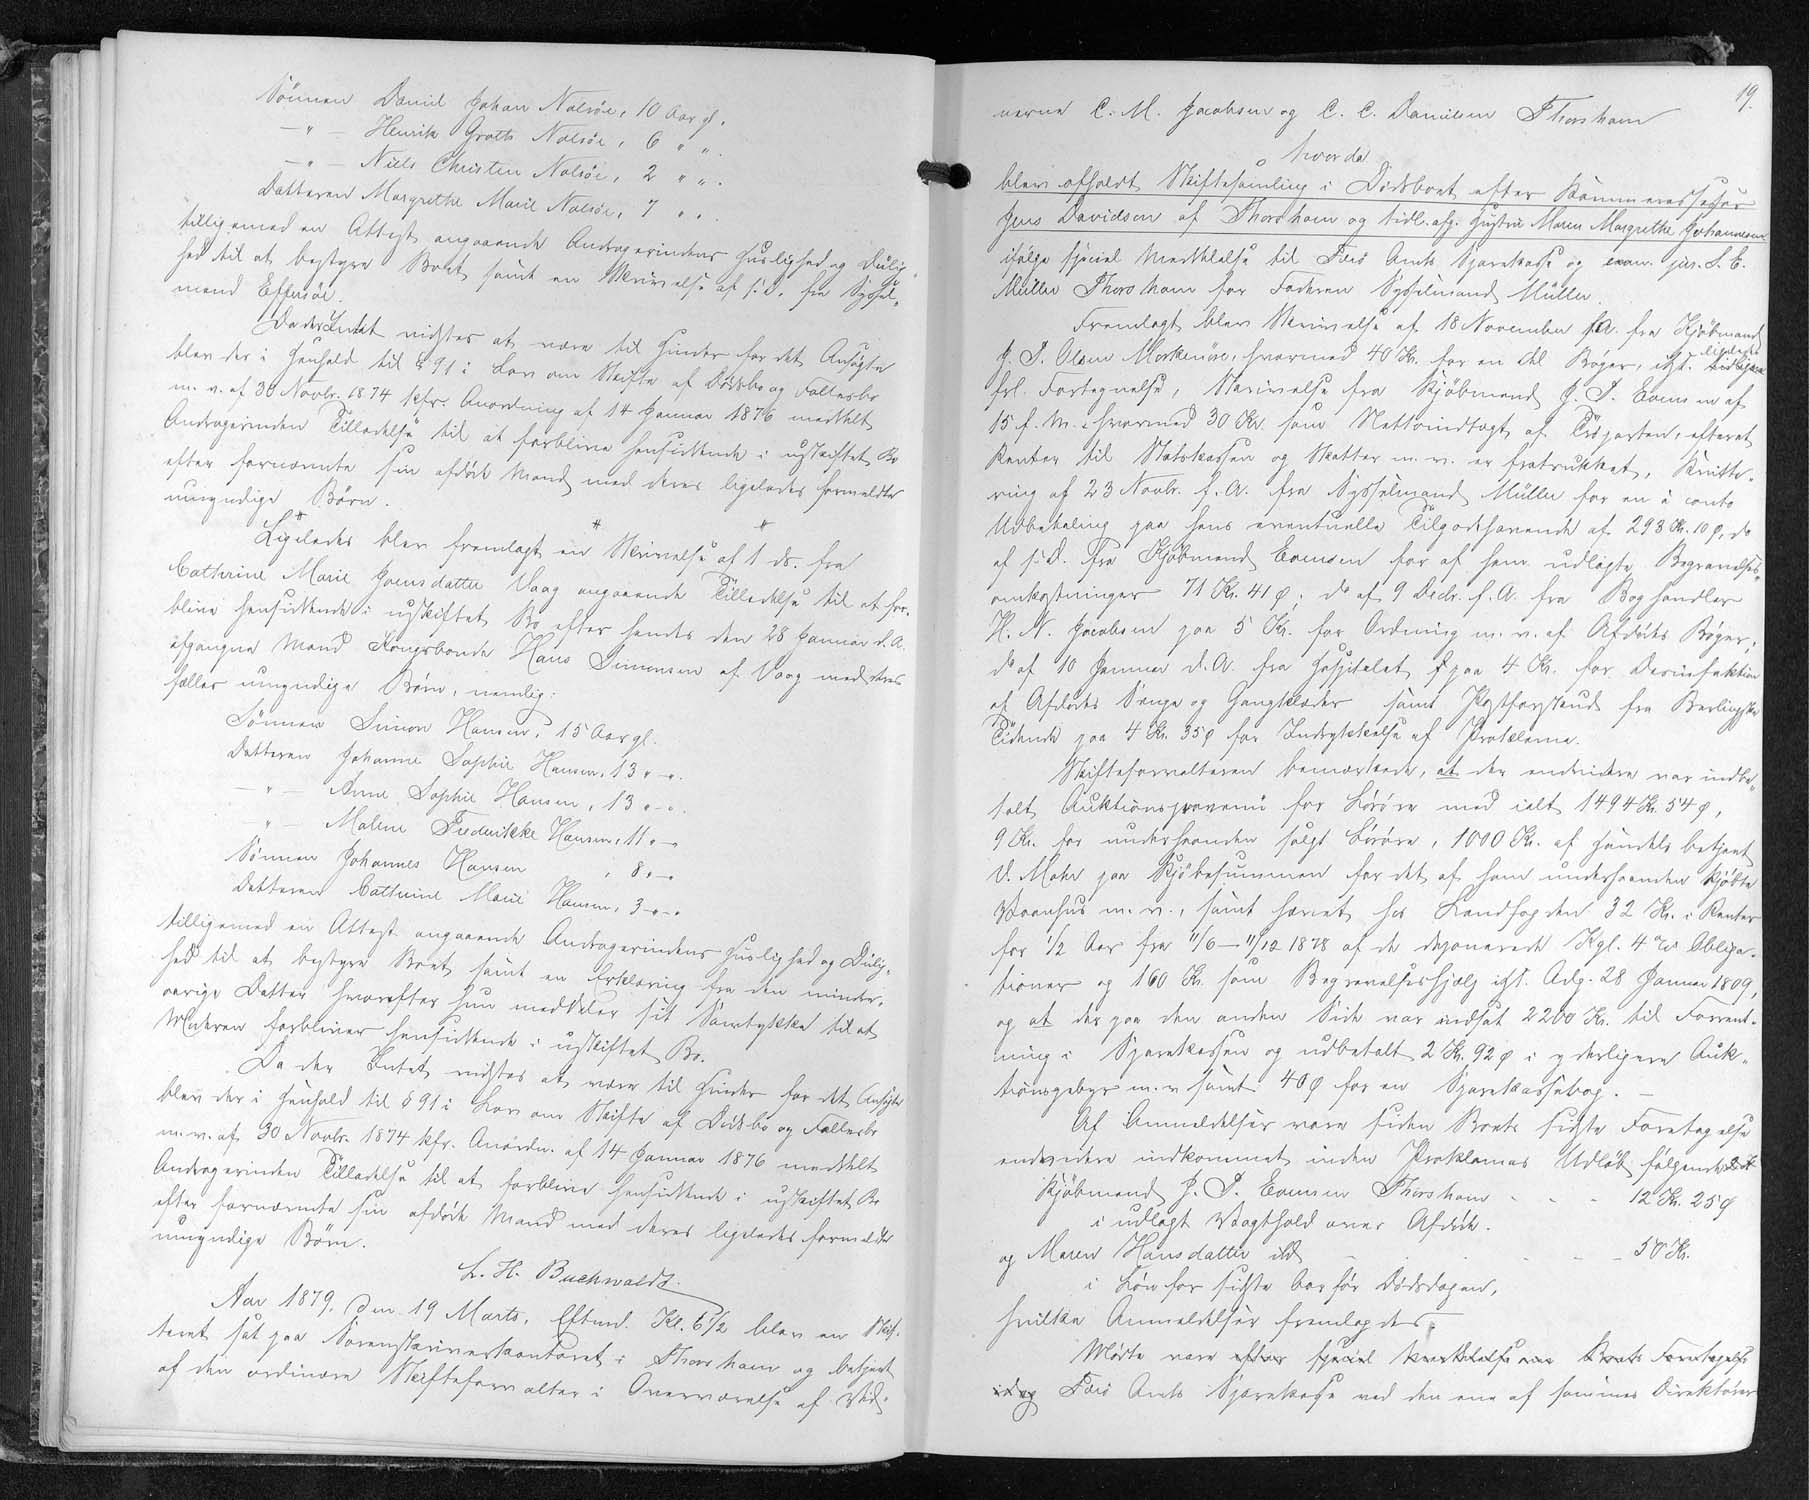 Sönnen Daniel Johan Nolsöe, 10 Aar gl.
—"— Henrik Groth Nolsöe, 6 " ".
—"— Niels Christen Nolsöe, 2 " ".
Datteren Margrethe Marie Nolsöe, 7 " ".
tilligemed en Attest angaaende Andragerindens Huslighed og Dülig-
hed til at bestyre Boet samt en Skrivelse af s. D. fra Syssel-
mand Effersöe.
Da der Intet vidstes at være til Hinder for det Ansøgte
blev der i Henhold til § 91 i Lov om Skifte af Dødsbo og Fællesbo
m. v. af 30 Novbr. 1874 kfr. Anordning af 14 Januar 1876 meddelt
Andragerinden Tilladelse til at forblive hensiddende i uskiftet Bo
efter fornævnte sin afdøde Mand med deres ligeledes formeldte
umyndige Børn.
Ligeledes blev fremlagt en Skrivelse af 1 ds. fra
Cathrine Marie Joensdatter Vaag angaaende Tilladelse til at for-
blive hensiddende i uskiftet Bo efter hendes den 28 Januar d. A.
afgangne Mand Kongsbonde Hans Simonsen af Vaag med deres
fælles umyndige Børn, nemlig:
Sönnen Simon Hansen, 15 Aar gl.
Datteren Johanne Sophie Hansen, 13 "—".
—"— Anne Sophie Hansen, 13 "—".
—"— Malene Frederikke Hansen, 11 "—"
Sönnen Johannes Hansen, 8 "—"
Datteren Cathrine Marie Hansen, 3 —"—"
tilligemed en Attest angaaende Andragerindens Huslighed og Dülig-
hed til at bestyre Boet samt en Erklæring fra den minder-
aarige Datter hvorefter hun meddeler sit Samtykke til at
Moderen forbliver hensiddende i uskiftet Bo.
Da der Intet vidstes at være til Hinder for det Ansøgte
blev der i Henhold til § 91 i Lov om Skifte af Dødsbo og Fællesbo
m. v. af 30 Novbr. 1874 kfr. Anordn. af 14 Januar 1876 meddelt
Andragerinden Tilladelse til at forblive hensiddende i uskiftet Bo
efter fornævnte sin afdøde Mand med deres ligeledes formeldte
umyndige Børn.
L. H. Buchwaldt.
Aar 1879, den 19 Marts, Eftmd. Kl. 6 1/2 blev en Skif-
teret sat paa Sorenskriverkontoret i Thorshavn og betjent
af den ordinære Skifteforvalter i Overværelse af Vid-
19.
nerne C. M. Jacobsen og C. C. Danielsen Thorshavn
hvorda
blev afholdt Skiftesamling i Dødsboet efter Kammerassessor
Jens Davidsen af Thorshavn og tidl. afg. Hustru Maren Margrethe Johannesen
ifølge special Meddelelse til Færø Amts Sparekasse og exam. jur. L. E.
Müller Thorshavn for Faderen Sysselmand Müller.
Fremlagt blev Skrivelse af 18 November f. A. fra Kjøbmand
J. P. Olsen Morskranes, hvormed 40 Kr. for en Del Bøger, ifgt.
frl. Fortegnelse, Skrivelse fra Kjøbmand J. P. Evensen af
15 f. M. hvormed 30 Kr. som Nettoindtægt af Tisgarden, efterat
Renter til Statskassen og Skatter m. v. er fratrukket, Kvitte-
ring af 23 Novbr. f. A. fra Sysselmand Müller for en à conto
Udbetaling paa hans eventuelle Tilgodehavende af 293 Kr. 10 ø, do
af s. D. fra Kjøbmand Evensen for af ham udlagte Begravelses-
omkostninger 71 Kr. 41 ø; do af 9 Decbr. f. A. fra Boghandler
H. N. Jacobsen paa 5 Kr. for Ordning m. v. af Afdødes Bøger;
do af 10 Januar d. A. fra Hospitalet paa 4 Kr. for Desinfektion
af Afdødes Senge og Gangklæder samt Postforskud fra Berlingske
Tidende paa 4 Kr. 35 ø for Indrykkelse af Proklama.
Skifteforvalteren bemærkede, at der endvidere var indbe-
talt Auktionsprovenü for Løsøre med ialt 1494 Kr. 54 ø,
9 Kr. for underhaanden solgt Løsøre, 1000 Kr. af Handels betjent
V. Mohr paa Kjøbesummen for det af ham underhaanden kjøbte
Vaanhus m. v., samt hævet hos Landfogden 32 Kr. i Renter
for 1/2 Aar fra 11/6—11/12 1878 af de deponerede Kgl. 4 % Obliga-
tioner og 160 Kr. som Begravelseshjælp ifgt. Adg. 28 Januar 1809,
og at der paa den anden Side var indsat 2200 Kr. til Forrent-
ning i Sparekassen og udbetalt 2 Kr. 92 ø i yderligere Auk-
tionsgebyr m. v. samt 40 ø for en Sparekassebog. —
Af Anmeldelser vare siden Boets sidste Foretagelse
endvidere indkommet inden Proklamas Udløb følgende
Kjøbmand J. P. Evensen Thorshavn - - - 12 Kr. 25 ø
i udlagt Vagthold over Afdøde.
og Maren Hansdatter ibd - - - 50 Kr.
i Løn for sidste Aar før Dødsdagen,
hvilke Anmeldelser fremlagdes.
Mødte vare efter special Meddelelse om Boets Foretagelse
idag Færø Amts Sparekasse ved den ene af sammes Direktører